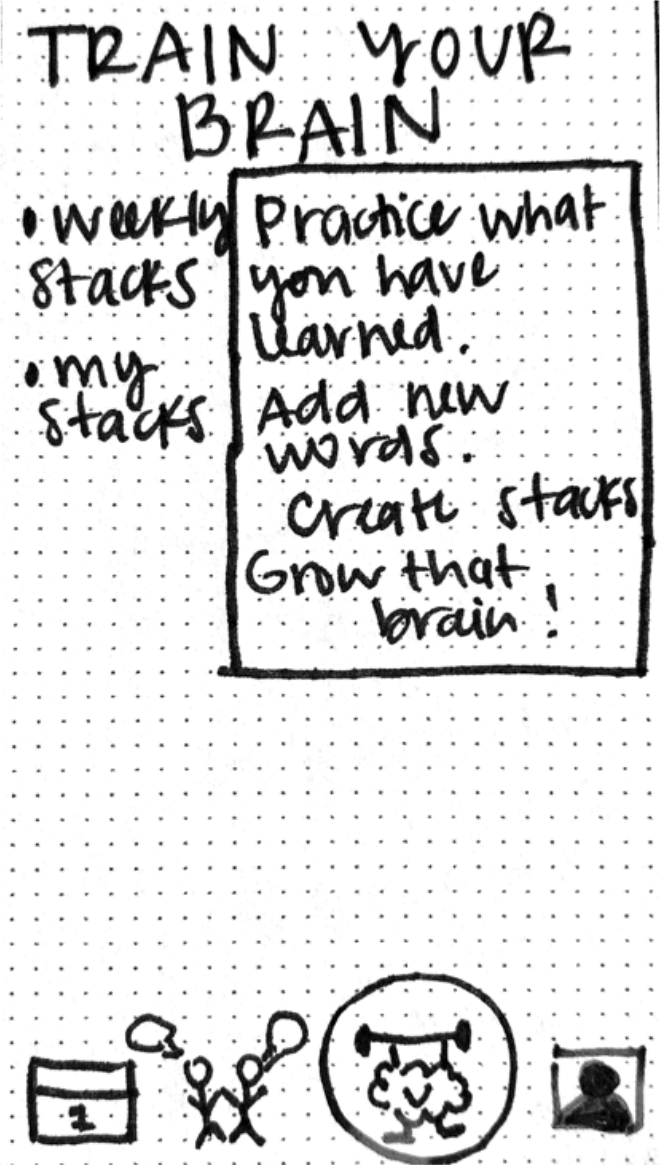 TRAIN YOUR
BRAIN
• weekly
stacks
• my
stacks
Practice what
you have
learned.
Add new
words.
Create stacks
Grow that
brain!
1